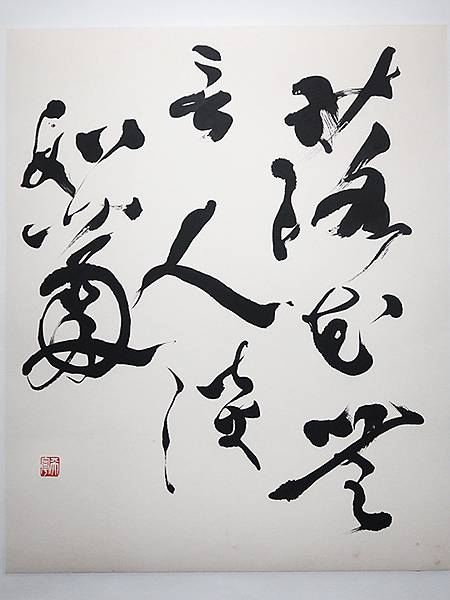 落花無
言人淡
如菊